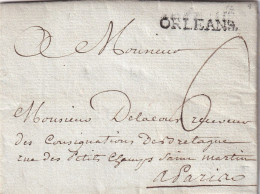 ORLEANS
A Monsieur
Monsieur Delacour receveur
des Consignations de Bretagne
rue des Petits Champs Saint martin
a Paris